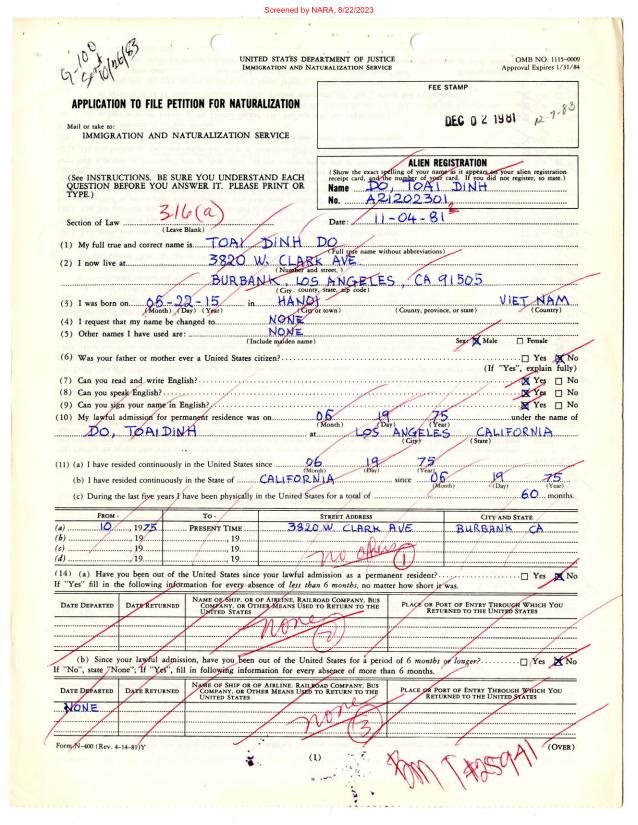 Screened by NARA, 8/22/2023
G-100
Sent 10/26/83
UNITED STATES DEPARTMENT OF JUSTICE
IMMIGRATION AND NATURALIZATION SERVICE
OMB NO. 1115-0009
Approval Expires 1/31/84
FEE STAMP
DEC 02 1981 12-7-83
APPLICATION TO FILE PETITION FOR NATURALIZATION
Mail or take to:
IMMIGRATION AND NATURALIZATION SERVICE
ALIEN REGISTRATION
(See INSTRUCTIONS. BE SURE YOU UNDERSTAND EACH QUESTION BEFORE YOU ANSWER IT. PLEASE PRINT OR TYPE.)
(Show the exact spelling of your name as it appears on your alien registration receipt card, and the number of your card. If you did not register, so state.)
Name DO, TOAI DINH
No. A21202301
Section of Law 316(a)
(Leave Blank)
Date: 11-04-81
(1) My full true and correct name is TOAI DINH DO
(Full true name without abbreviations)
(2) I now live at 3820 W. CLARK AVE
(Number and street,)
BURBANK, LOS ANGELES, CA 91505
(City, county, state, zip code)
(3) I was born on 05-22-15 in HANOI VIET NAM
(Month) (Day) (Year) (City or town) (County, province, or state) (Country)
(4) I request that my name be changed to NONE
(5) Other names I have used are: NONE
(Include maiden name) Sex: ☒ Male ☐ Female
(6) Was your father or mother ever a United States citizen? ☐ Yes ☒ No
(If "Yes", explain fully)
(7) Can you read and write English? ☒ Yes ☐ No
(8) Can you speak English? ☒ Yes ☐ No
(9) Can you sign your name in English? ☒ Yes ☐ No
(10) My lawful admission for permanent residence was on 06 19 75 under the name of
(Month) (Day) (Year)
DO, TOAI DINH at LOS ANGELES CALIFORNIA
(City) (State)
(11) (a) I have resided continuously in the United States since 06 19 75
(Month) (Day) (Year)
(b) I have resided continuously in the State of CALIFORNIA since 06 19 75
(Month) (Day) (Year)
(c) During the last five years I have been physically in the United States for a total of 60 months.
FROM - TO - STREET ADDRESS CITY AND STATE
(a) 10, 1975 PRESENT TIME 3820 W. CLARK AVE BURBANK CA
(b) , 19 , 19
(c) , 19 , 19
(d) , 19 , 19
no others 1
(14) (a) Have you been out of the United States since your lawful admission as a permanent resident? ☐ Yes ☒ No
If "Yes" fill in the following information for every absence of less than 6 months, no matter how short it was.
DATE DEPARTED DATE RETURNED NAME OF SHIP, OR OF AIRLINE, RAILROAD COMPANY, BUS COMPANY, OR OTHER MEANS USED TO RETURN TO THE UNITED STATES PLACE OR PORT OF ENTRY THROUGH WHICH YOU RETURNED TO THE UNITED STATES
none 2
(b) Since your lawful admission, have you been out of the United States for a period of 6 months or longer? ☐ Yes ☒ No
If "No", state "None"; If "Yes", fill in following information for every absence of more than 6 months.
DATE DEPARTED DATE RETURNED NAME OF SHIP OR OF AIRLINE, RAILROAD COMPANY, BUS COMPANY, OR OTHER MEANS USED TO RETURN TO THE UNITED STATES PLACE OR PORT OF ENTRY THROUGH WHICH YOU RETURNED TO THE UNITED STATES
NONE
none 3
Form N-400 (Rev. 4-14-81)Y
(1)
(OVER)